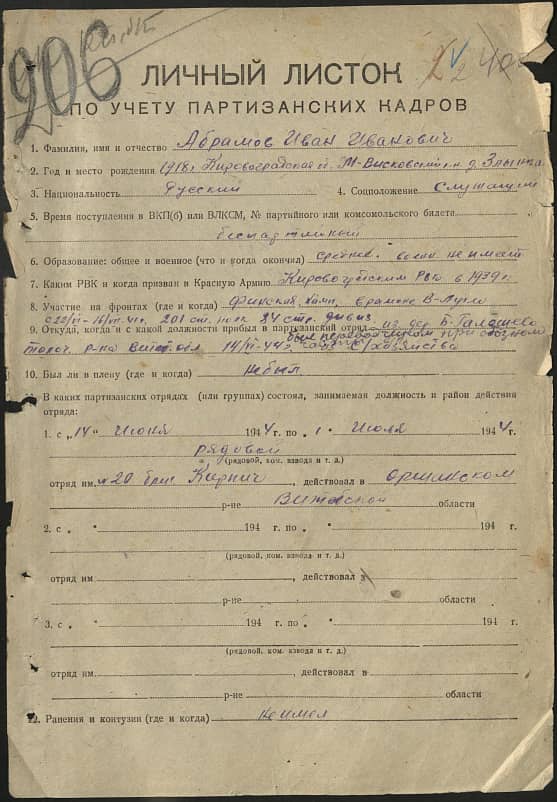 206
ЛИЧНЫЙ ЛИСТОК
ПО УЧЕТУ ПАРТИЗАНСКИХ КАДРОВ
1. Фамилия, имя и отчество Абрамов Иван Иванович
2. Год и место рождения 1918г. Кировоградская М-Висковский д. Злынка
3. Национальность Русский 4. Соцположение Служащий
5. Время поступления в ВКП(б) или ВЛКСМ, № партийного или комсомольского билета
беспартийный
6. Образование: общее и военное (что и когда окончил) средн. воен не имеет
7. Каким РВК и когда призван в Красную Армию Кировоградским Рвк в 1939г.
8. Участие на фронтах (где и когда) Финская В-Луки
с 22/VI 201 ст. полк 84 стр. дивиз
9. Откуда, когда и с какой должности прибыл в партизанский отряд из дер.
толоч. р-на Вит. обл. 14/VI-44г. был с/хозяйства
10. Был ли в плену (где и когда) не был
В каких партизанских отрядах (или группах) состоял, занимаемая должность и район действия
отряда:
1. с „14" Июня 1944 г. по „1" Июля 1944 г.
рядовой
(рядовой, ком. взвода и т. д.)
отряд им. №20 бриг Кирпич, действовал в Оршанском
р-не Витебской области
2. с „ " 194 г. по „ " 194 г.
(рядовой, ком. взвода и т. д.)
отряд им , действовал в
р-не области
3. с „ " 194 г. по „ " 194 г.
(рядовой, ком. взвода и т. д.)
отряд им , действовал в
р-не области
12. Ранения и контузии (где и когда) не имел